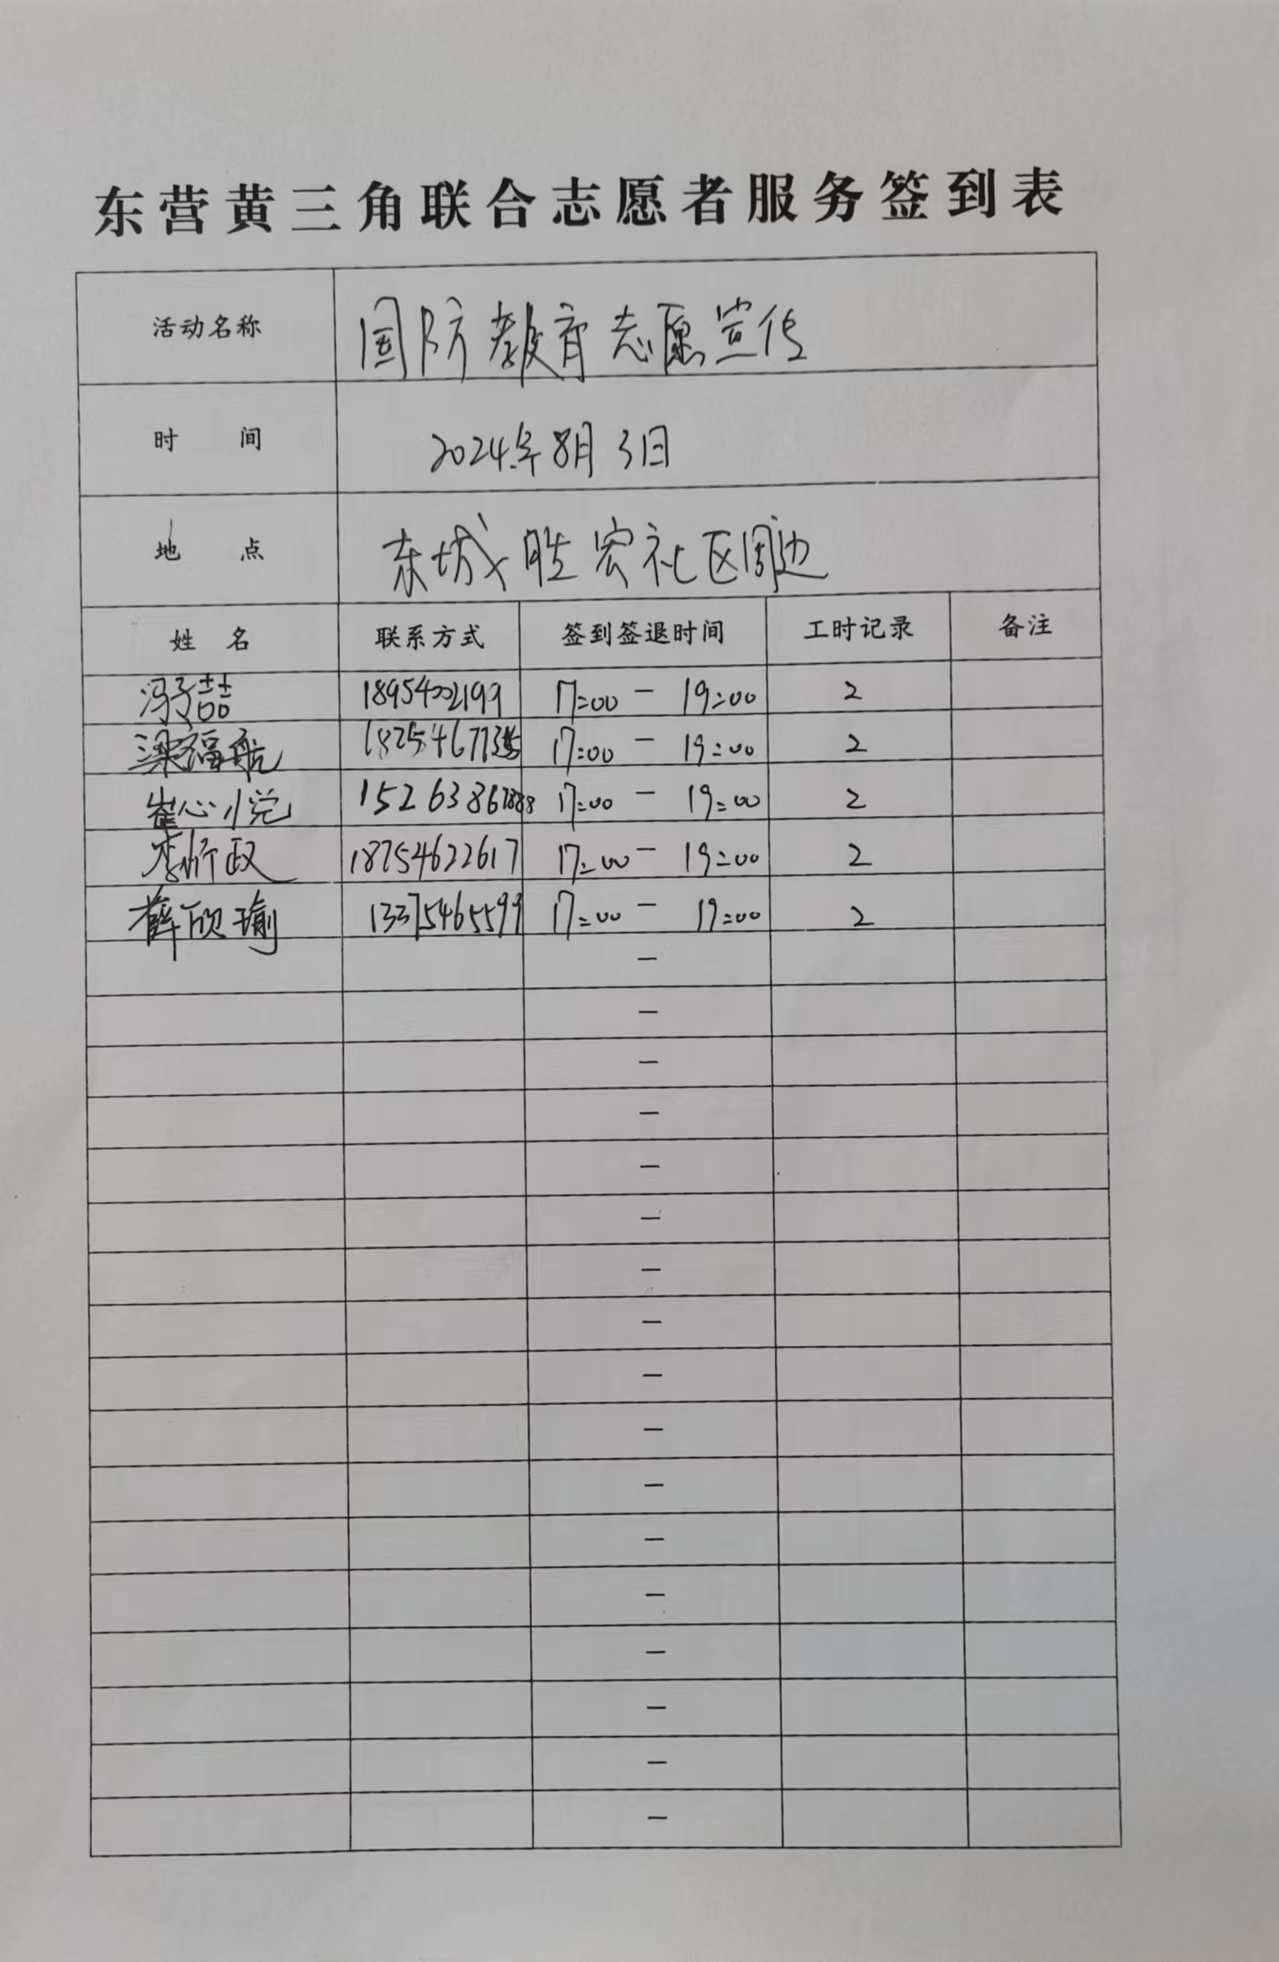 东营黄三角联合志愿者服务签到表
活动名称 国防教育志愿宣传
时 间 2024年8月3日
地 点 东城胜宏社区周边
姓 名 联系方式 签到签退时间 工时记录 备注
冯子喆 18954002199 17:00 - 19:00 2
梁福航 17:00 - 19:00 2
崔心悦 15263867888 17:00 - 19:00 2
李昕政 18754622617 17:00 - 19:00 2
薛欣瑜 13375465599 17:00 - 19:00 2
-
-
-
-
-
-
-
-
-
-
-
-
-
-
-
-
-